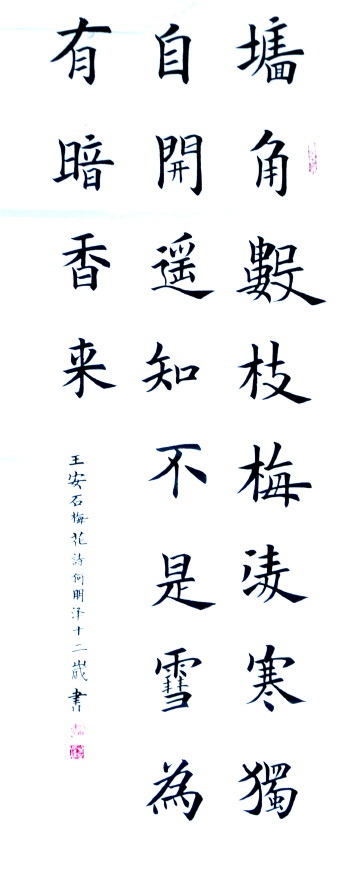 墻角數枝梅凌寒獨
自開遥知不是雪為
有暗香来
王安石梅花詩何明泽十二歲書